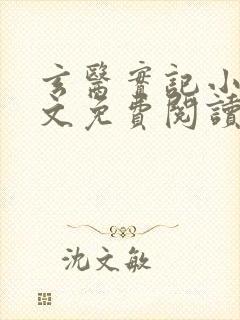 玄醫實記小
文免費閱讀
沈文敏